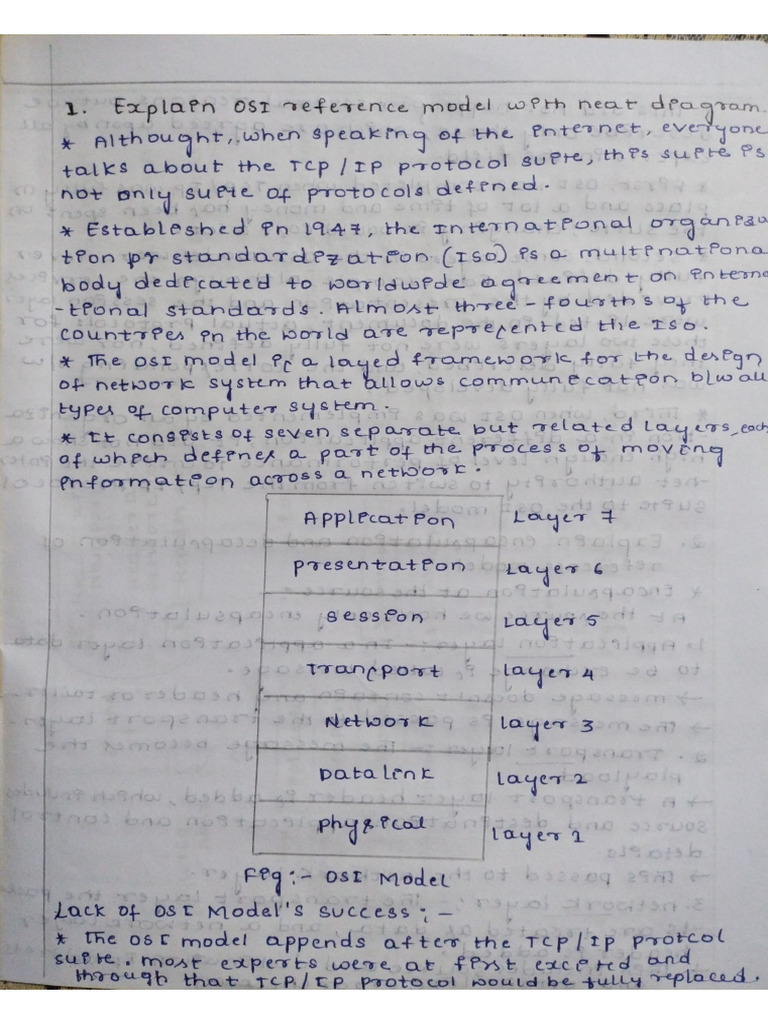 1. Explain OSI reference model with neat diagram.
* Althought,, when speaking of the internet, everyone
talks about the TCP / IP protocol suite, this suite is
not only suite of protocols defined.
* Established in 1947, the International organisa
tion pr standardization (ISO) is a multinationa
body dedicated to worldwide agreement on interna
-tional standards. Almost three-fourths of the
countries in the world are represented the ISO.
* The OSI model is a layed framework for the design
of network system that allows communication b/w all
types of computer system.
* It consists of seven separate but related layers, each
of which defines a part of the process of moving
information across a network.
Application Layer 7
presentation Layer 6
session Layer 5
Transport layer 4
Network layer 3
Datalink layer 2
physical layer 1
Fig :- OSI Model
Lack of OSI Model's success :-
* The OSI model appends after the TCP/IP protcol
suite. most experts were at first excited and
through that TCP/IP protocol would be fully replaced.